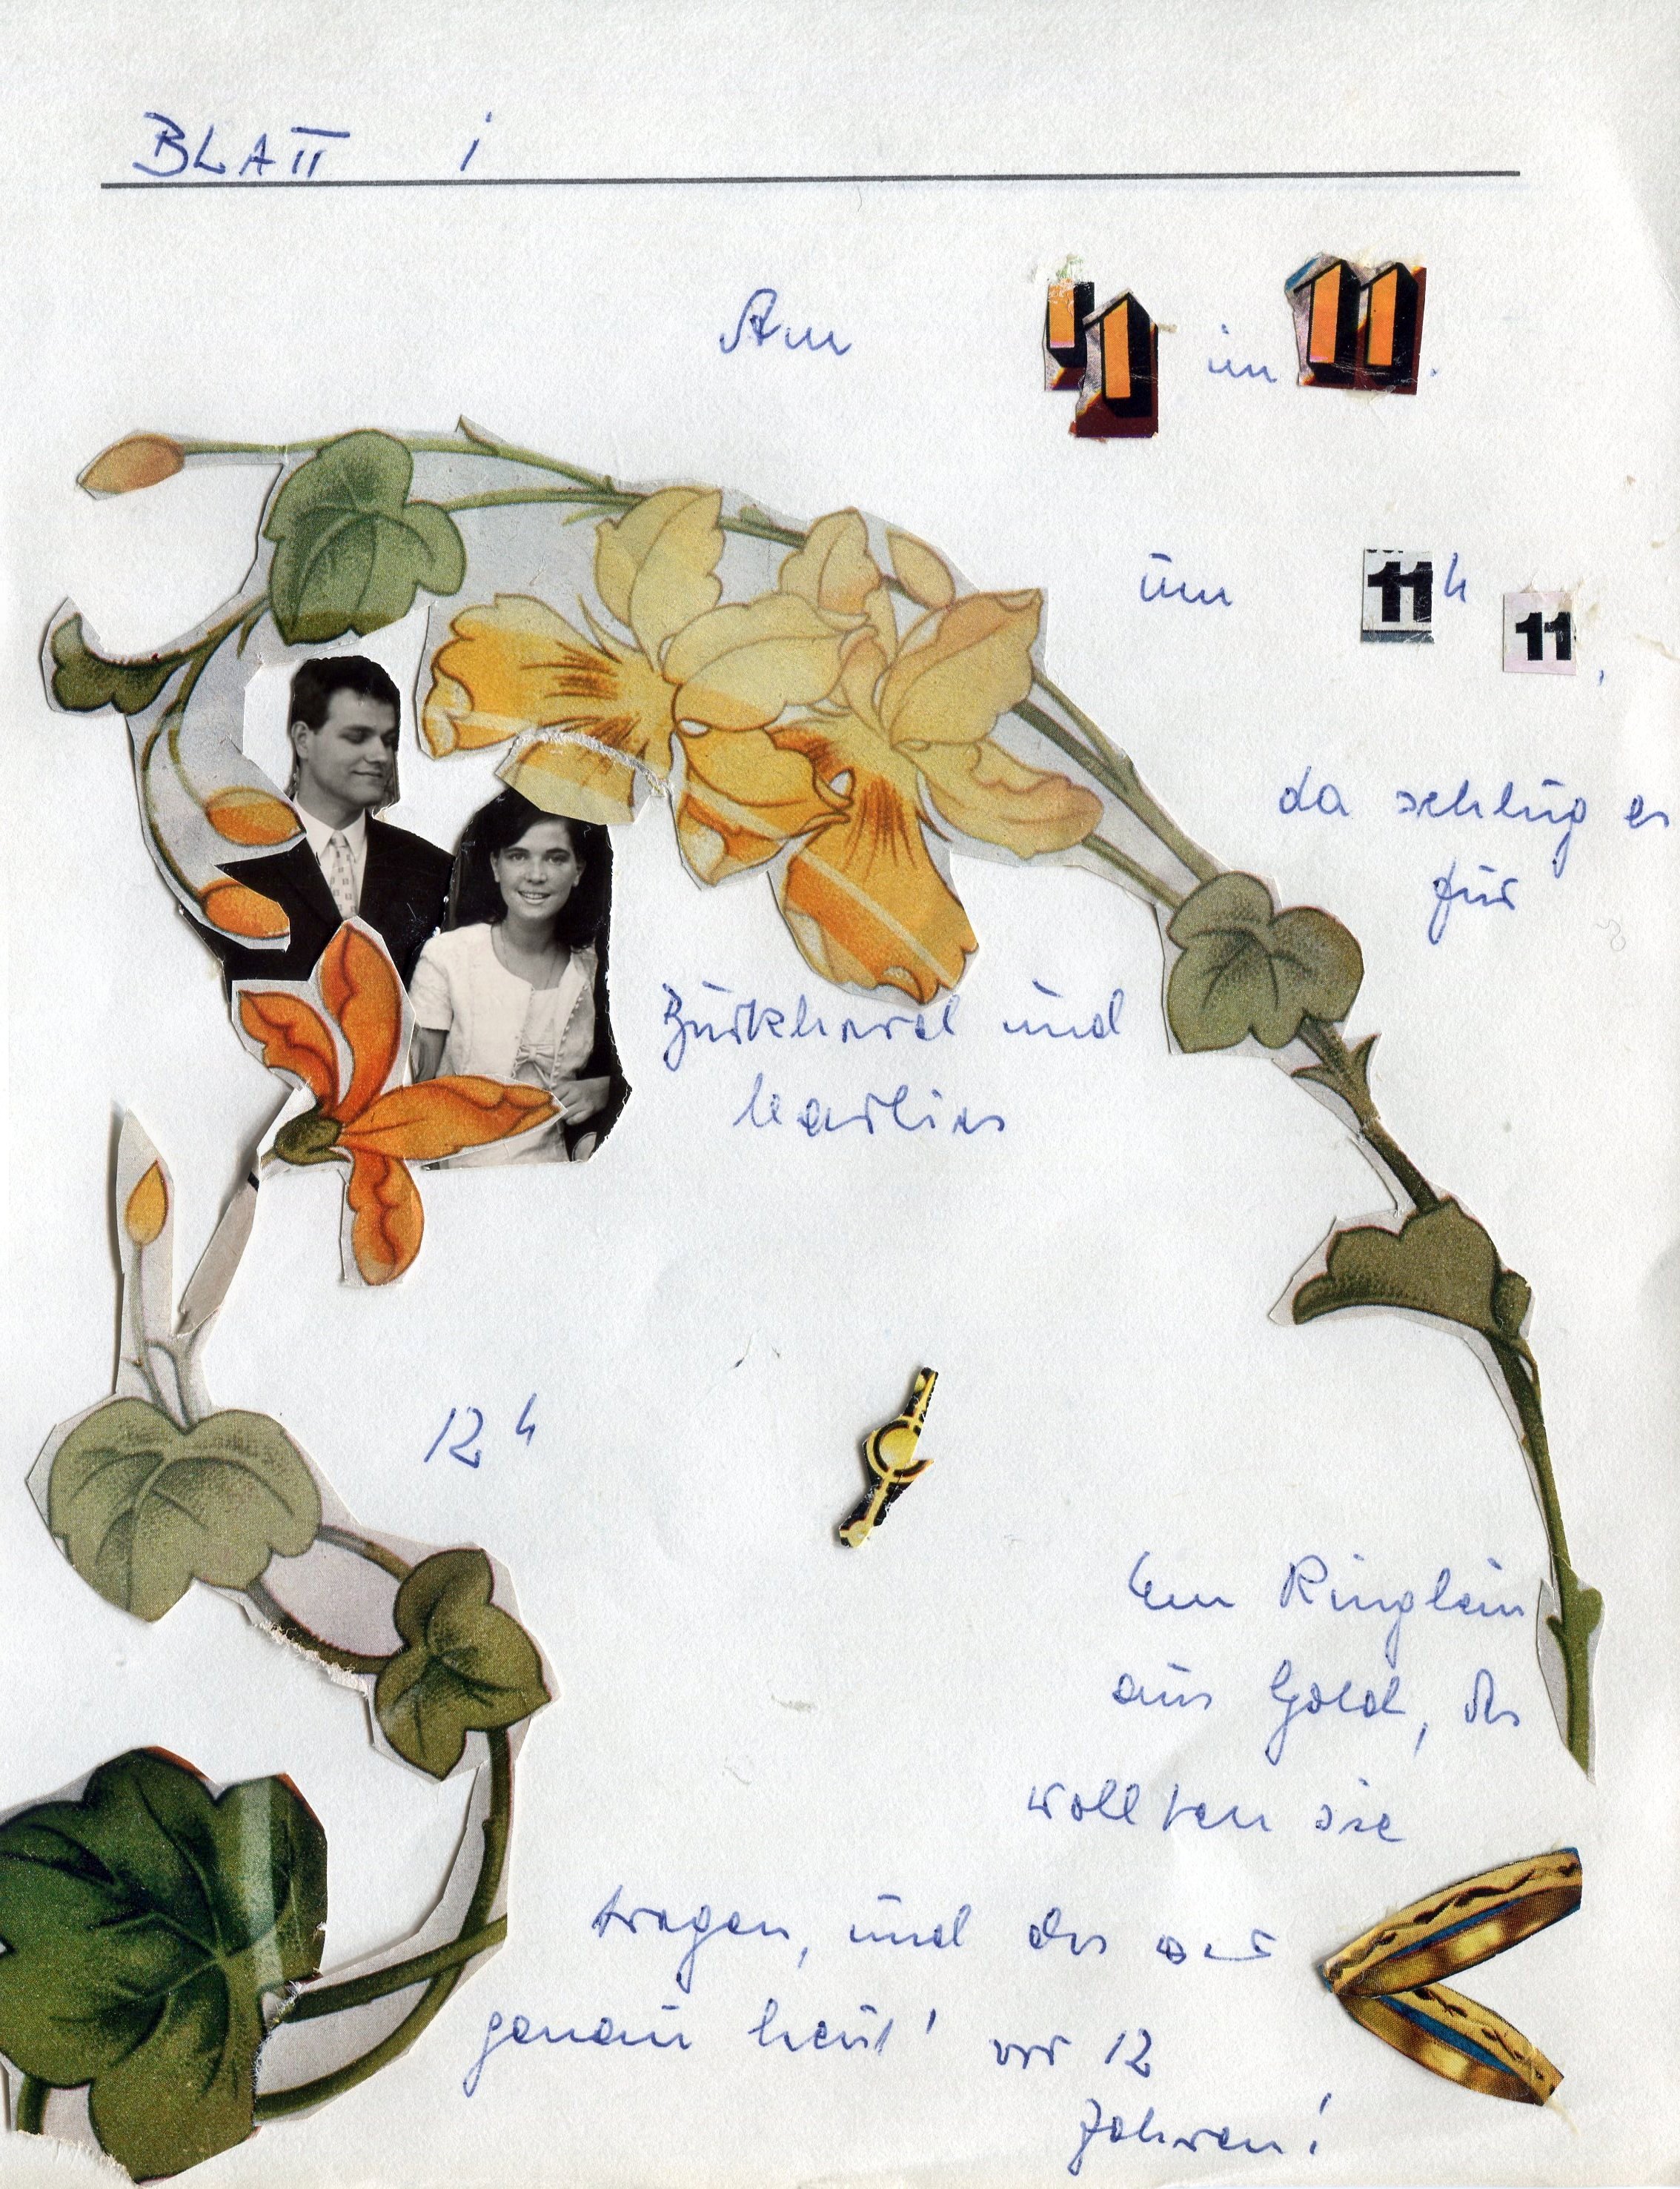 BLATT i
Am 11 im 11.
um 11h 11,
da schlug es
für
Burkhard und
Marlies
12h
Ein Ringlein
aus Gold, das
wollten sie
tragen, und das war
genau heut' vor 12
Jahren!